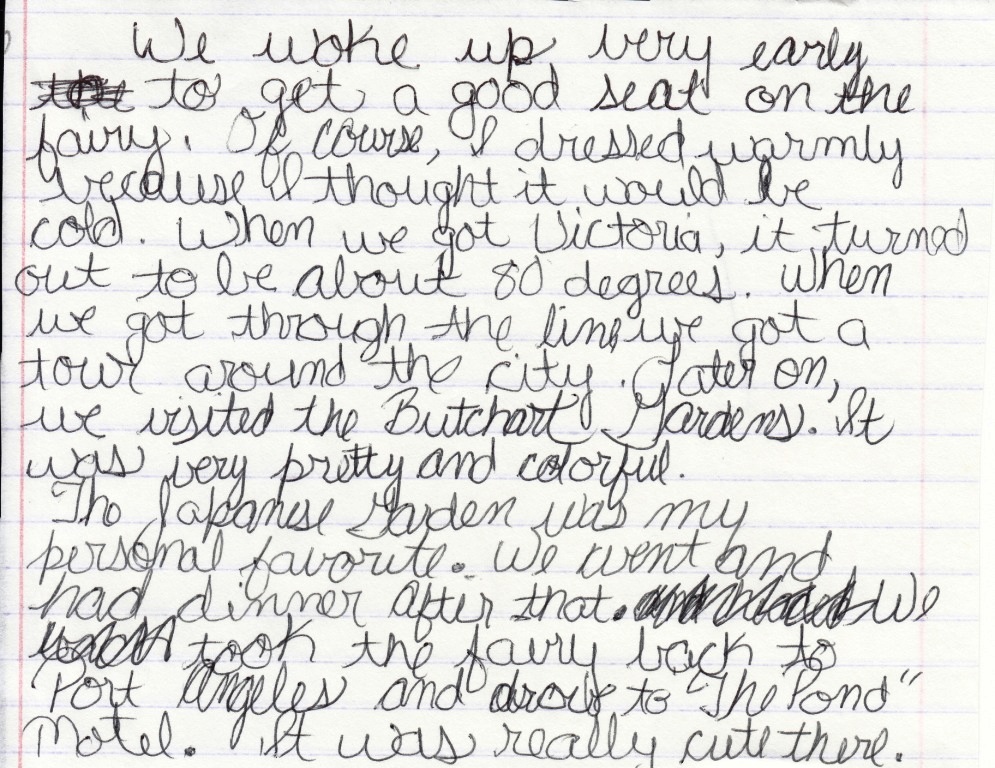 We woke up very early
to get a good seat on the
fairy. Of course, I dressed warmly
because I thought it would be
cold. When we got Victoria, it turned
out to be about 80 degrees. When
we got through the line we got a
tour around the city. Later on,
we visited the Butchart Gardens. It
was very pretty and colorful.
The Japanese Garden was my
personal favorite. We went and
had dinner after that. We
took the fairy back to
Port Angeles and drove to "The Pond"
Motel. It was really cute there.